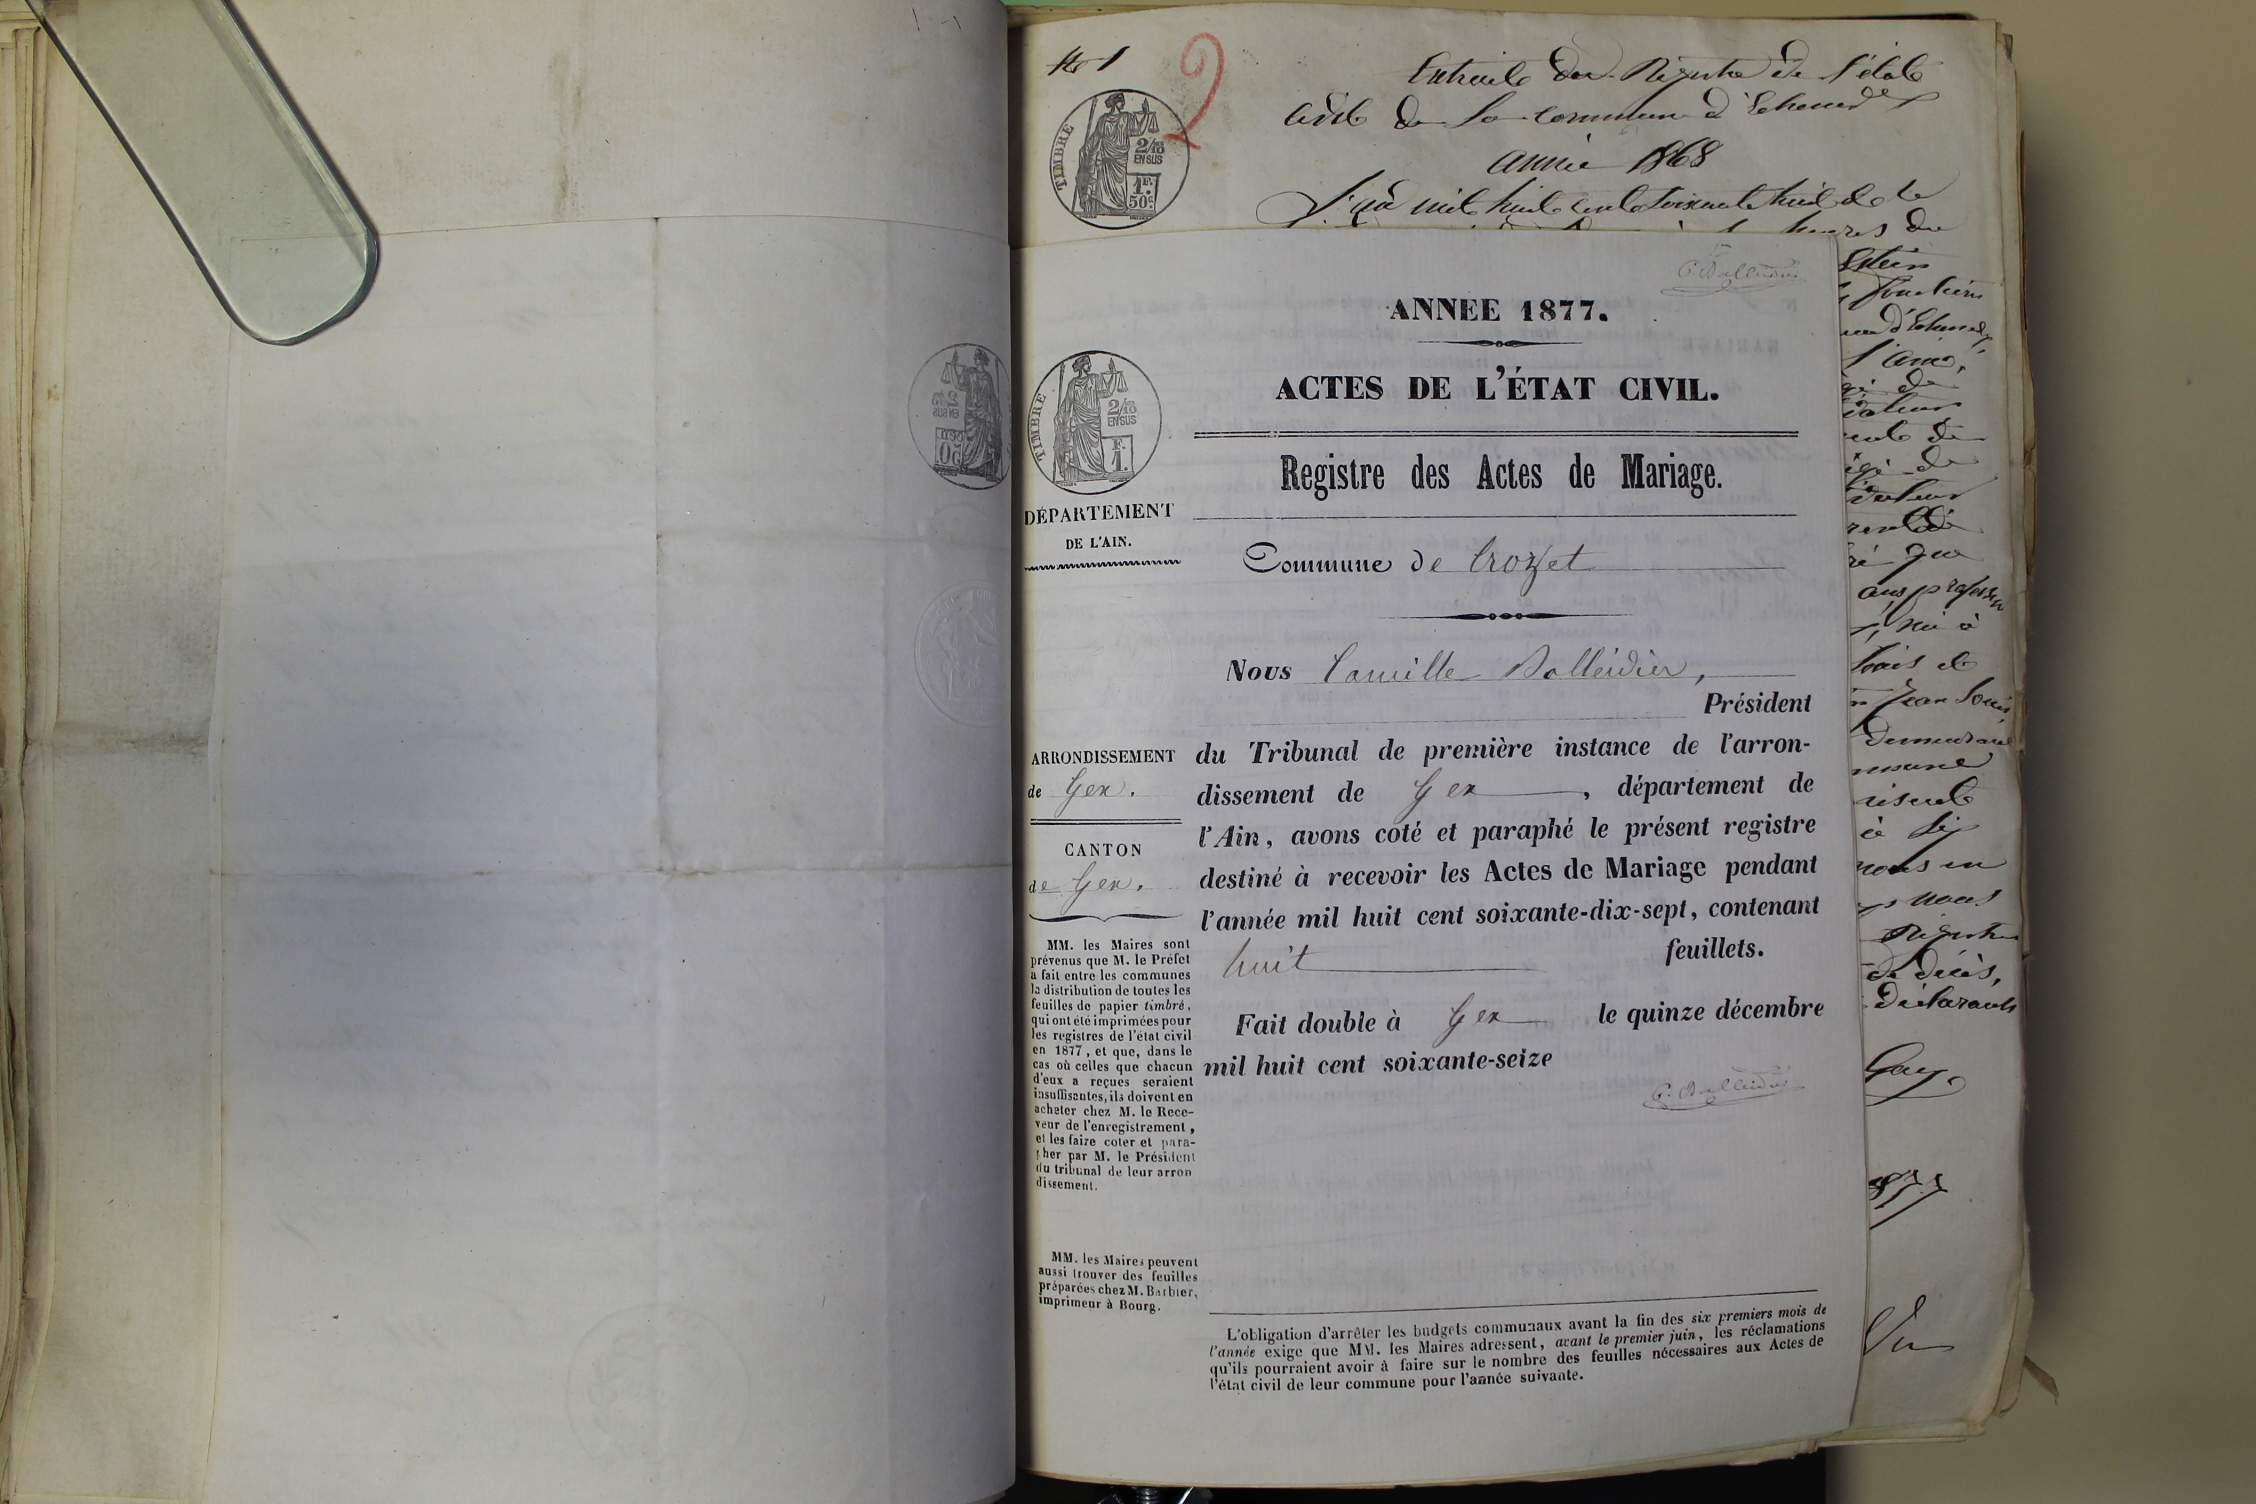 N° 1
2
Extrait des Registre de l'état
civil de la commune d'Echenevex
année 1868
L'an mil huit cent soixante huit et le
heures du
TIMBRE
2/10
EN SUS
1F.
50c.
C. Balleidier
ANNÉE 1877.
ACTES DE L'ÉTAT CIVIL.
Registre des Actes de Mariage.
TIMBRE
2/10
EN SUS
F.
1.
DÉPARTEMENT
DE L'AIN.
Commune de Crozet
Nous Camille Balleidier,
Président
du Tribunal de première instance de l'arron-
dissement de Gex, département de
l'Ain, avons coté et paraphé le présent registre
destiné à recevoir les Actes de Mariage pendant
l'année mil huit cent soixante-dix-sept, contenant
huit feuillets.
Fait double à Gex le quinze décembre
mil huit cent soixante-seize
C. Balleidier
ARRONDISSEMENT
de Gex.
CANTON
de Gex.
MM. les Maires sont
prévenus que M. le Préfet
a fait entre les communes
la distribution de toutes les
feuilles de papier timbré,
qui ont été imprimées pour
les registres de l'état civil
en 1877, et que, dans le
cas où celles que chacun
d'eux a reçues seraient
insuffisantes, ils doivent en
acheter chez M. le Rece-
veur de l'enregistrement,
et les faire coter et para-
pher par M. le Président
du tribunal de leur arron
dissement.
MM. les Maires peuvent
aussi trouver des feuilles
préparées chez M. Barbier,
imprimeur à Bourg.
L'obligation d'arrêter les budgets communaux avant la fin des six premiers mois de
l'année exige que MM. les Maires adressent, avant le premier juin, les réclamations
qu'ils pourraient avoir à faire sur le nombre des feuilles nécessaires aux Actes de
l'état civil de leur commune pour l'année suivante.
l'ain,
de
de
de
que
né à
Louis et
Jean Louis
demeurant
nous en
nous
Registre
de décès,
déclarants
Gay,
1877
Vu